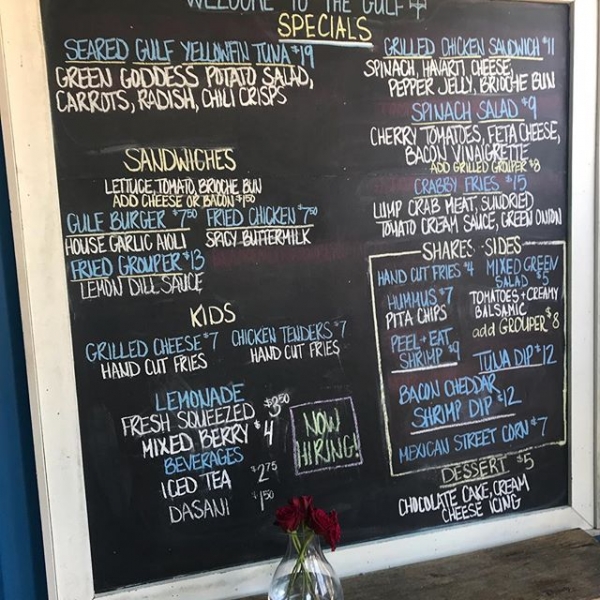 WELCOME TO THE GULF
SPECIALS
SEARED GULF YELLOWFIN TUNA $19
GREEN GODDESS POTATO SALAD,
CARROTS, RADISH, CHILI CRISPS
SANDWICHES
LETTUCE, TOMATO, BRIOCHE BUN
ADD CHEESE OR BACON $1.50
GULF BURGER $7.50
HOUSE GARLIC AIOLI
FRIED CHICKEN $7.50
SPICY BUTTERMILK
FRIED GROUPER $13
LEMON DILL SAUCE
KIDS
GRILLED CHEESE $7
HAND CUT FRIES
CHICKEN TENDERS $7
HAND CUT FRIES
LEMONADE
FRESH SQUEEZED $3.50
MIXED BERRY $4
BEVERAGES
ICED TEA $2.75
DASANI $1.50
NOW
HIRING!
GRILLED CHICKEN SANDWICH $11
SPINACH, HAVARTI, CHEESE,
PEPPER JELLY, BRIOCHE BUN
SPINACH SALAD $9
CHERRY TOMATOES, FETA CHEESE,
BACON VINAIGRETTE
ADD GRILLED GROUPER $8
CRABBY FRIES $15
LUMP CRAB MEAT, SUNDRIED
TOMATO CREAM SAUCE, GREEN ONION
SHARES · SIDES
HAND CUT FRIES $4
HUMMUS $7
PITA CHIPS
PEEL + EAT
SHRIMP $9
MIXED GREEN
SALAD $5
TOMATOES + CREAMY
BALSAMIC
add GROUPER $8
TUNA DIP $12
BACON CHEDDAR
SHRIMP DIP $12
MEXICAN STREET CORN $7
DESSERT $5
CHOCOLATE CAKE, CREAM
CHEESE ICING